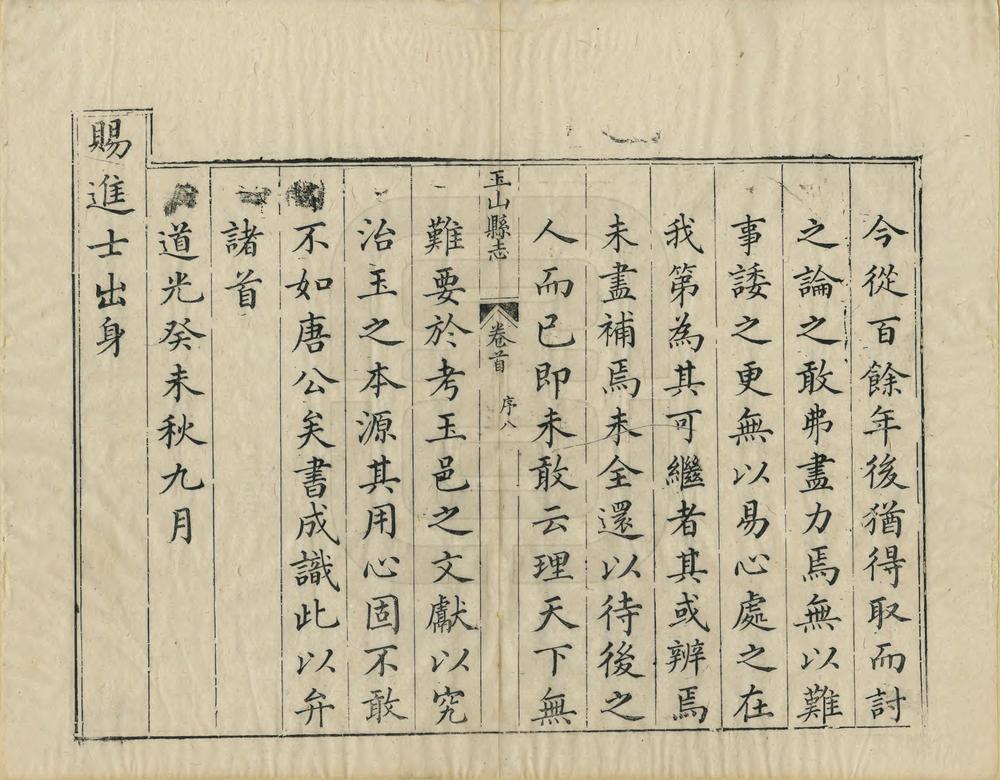 今從百餘年後猶得取而討
之論之敢弗盡力焉無以難
事諉之更無以易心處之在
我第為其可繼者其或辨焉
未盡補焉未全還以待後之
人而已即未敢云理天下無
玉山縣志
卷首
序八
難要於考玉邑之文獻以究
治玉之本源其用心固不敢
不如唐公矣書成識此以弁
諸首
道光癸未秋九月
賜進士出身